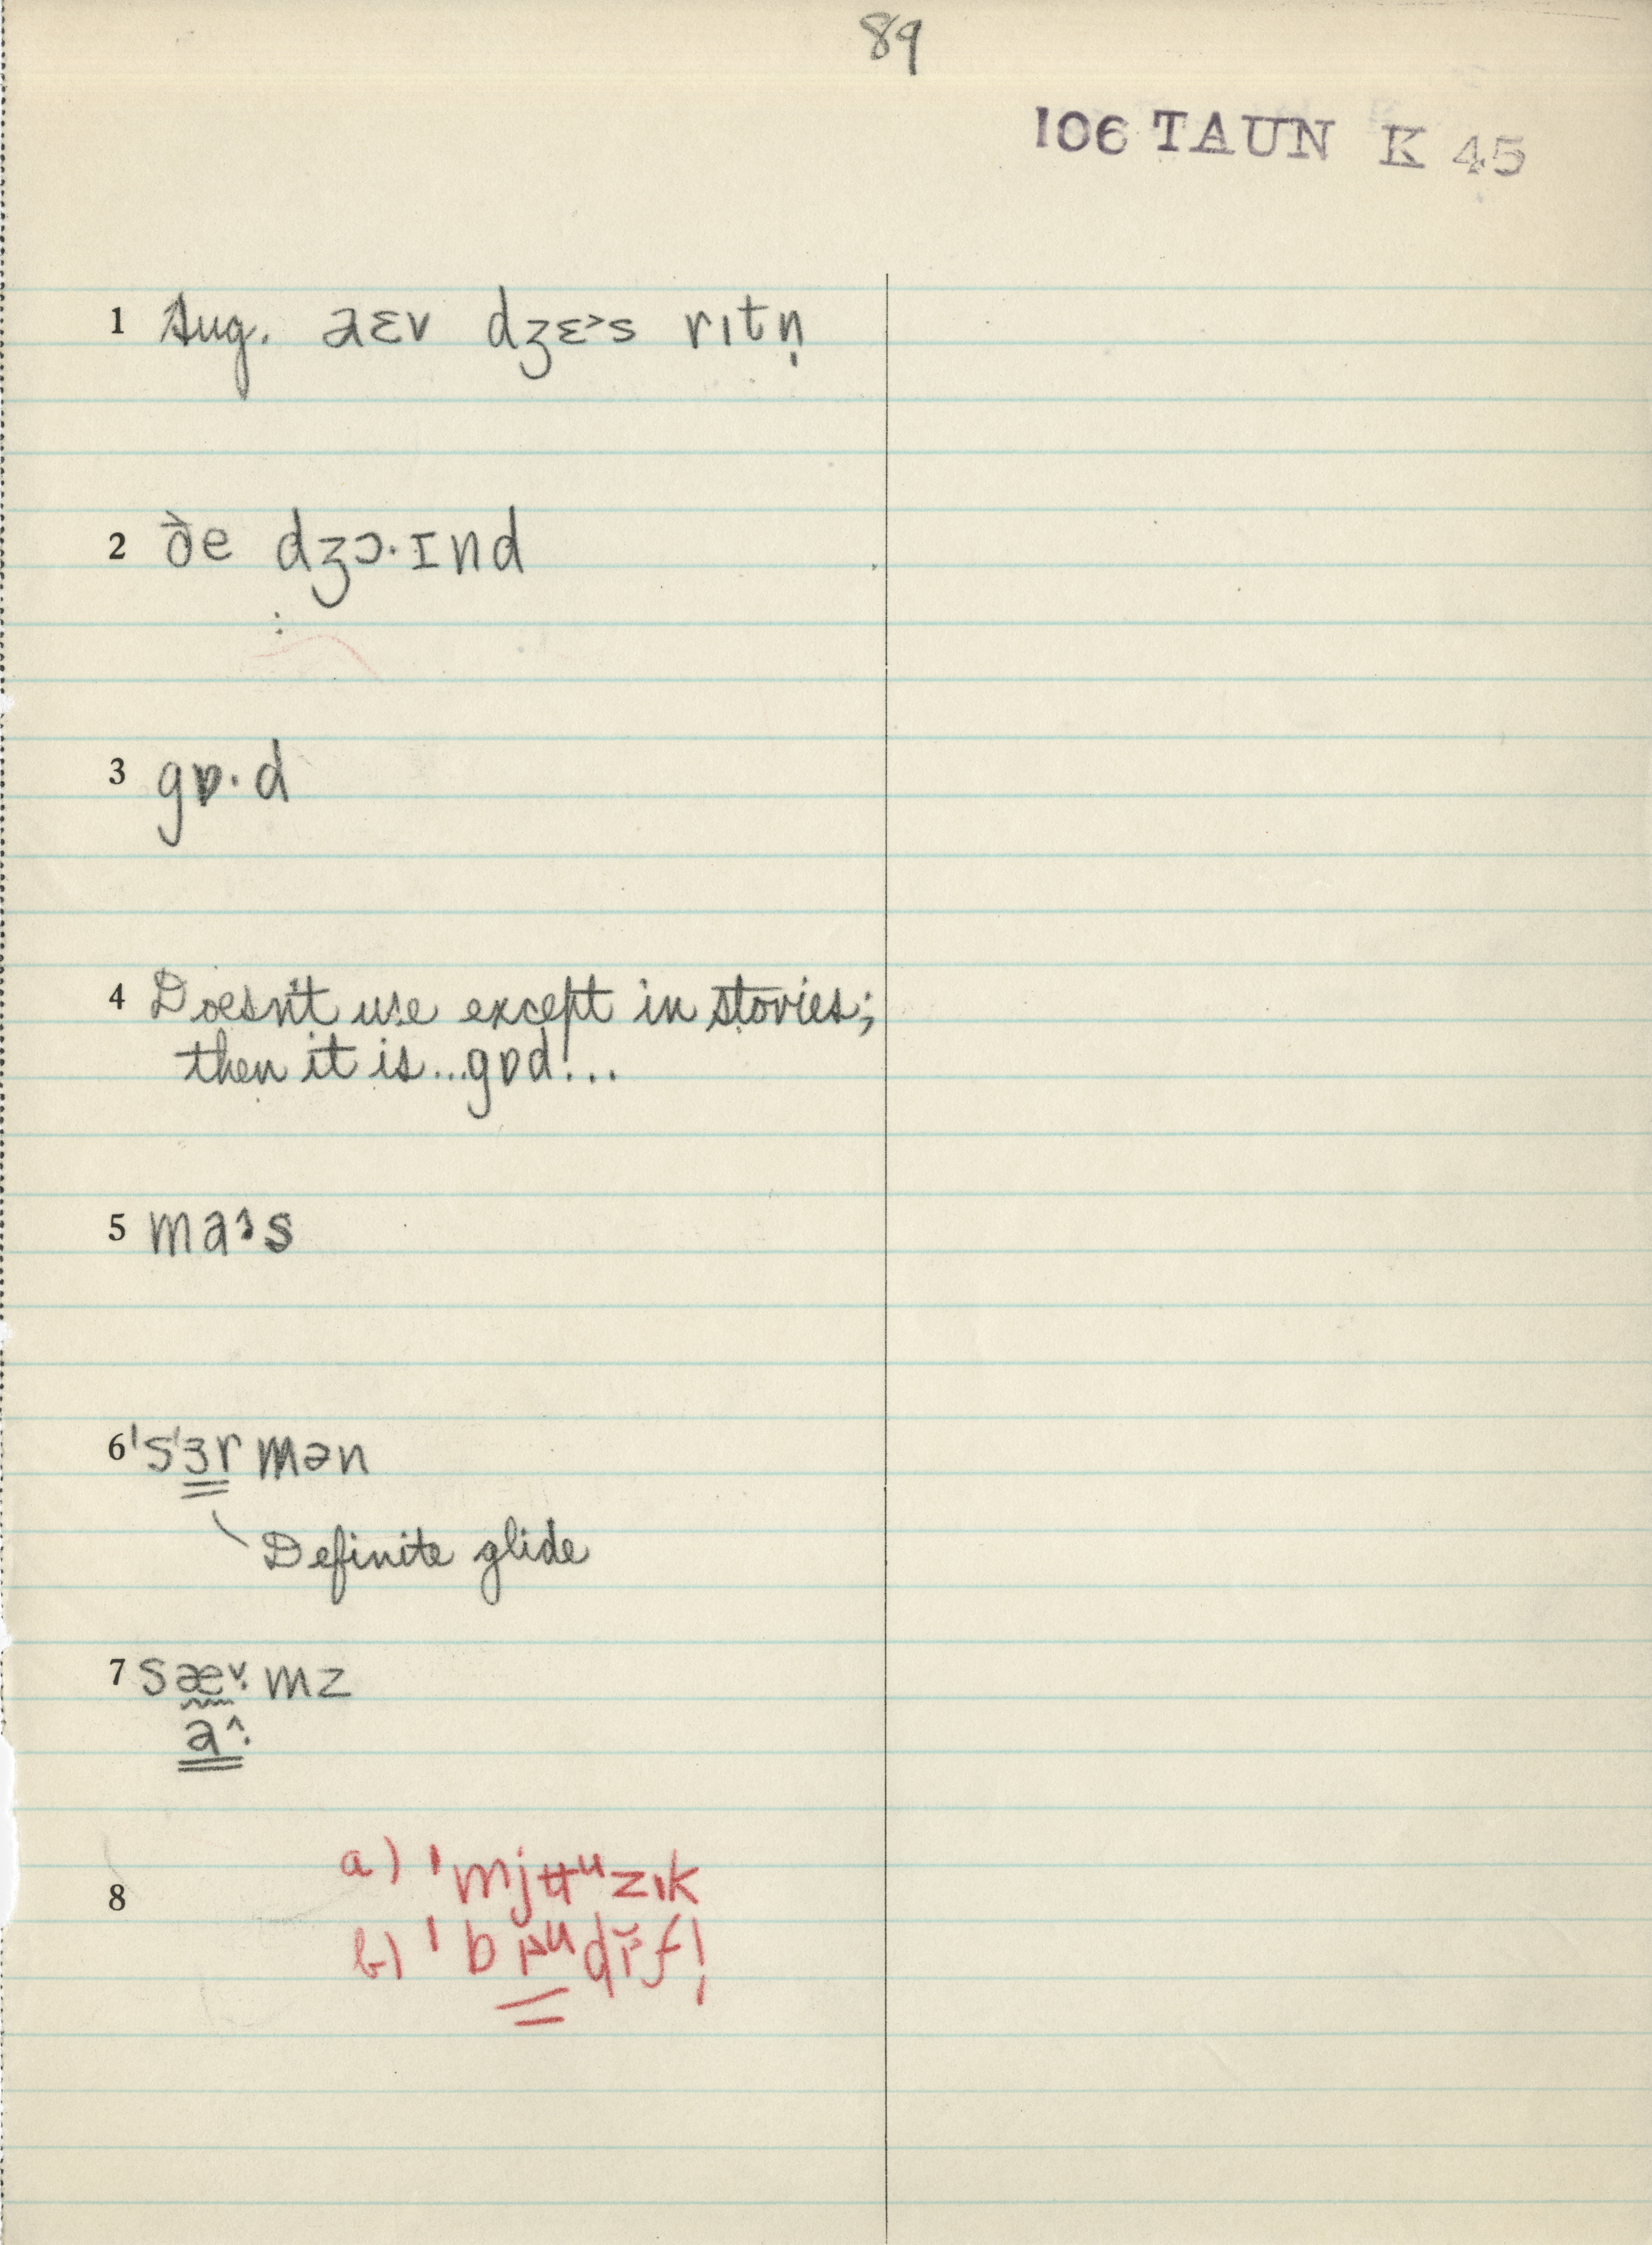 89
106 TAUN K 45
1 Aug. aɛv dʒɛ˃s rıtn̩
2 ðe dʒɔ·ɪnd
3 gɒ·d
4 Doesn't use except in stories;
then it is...gɒd!...
5
6 'sɜrmən
Definite glide
7 sæ˅·mz
a^·
8 a)
b)